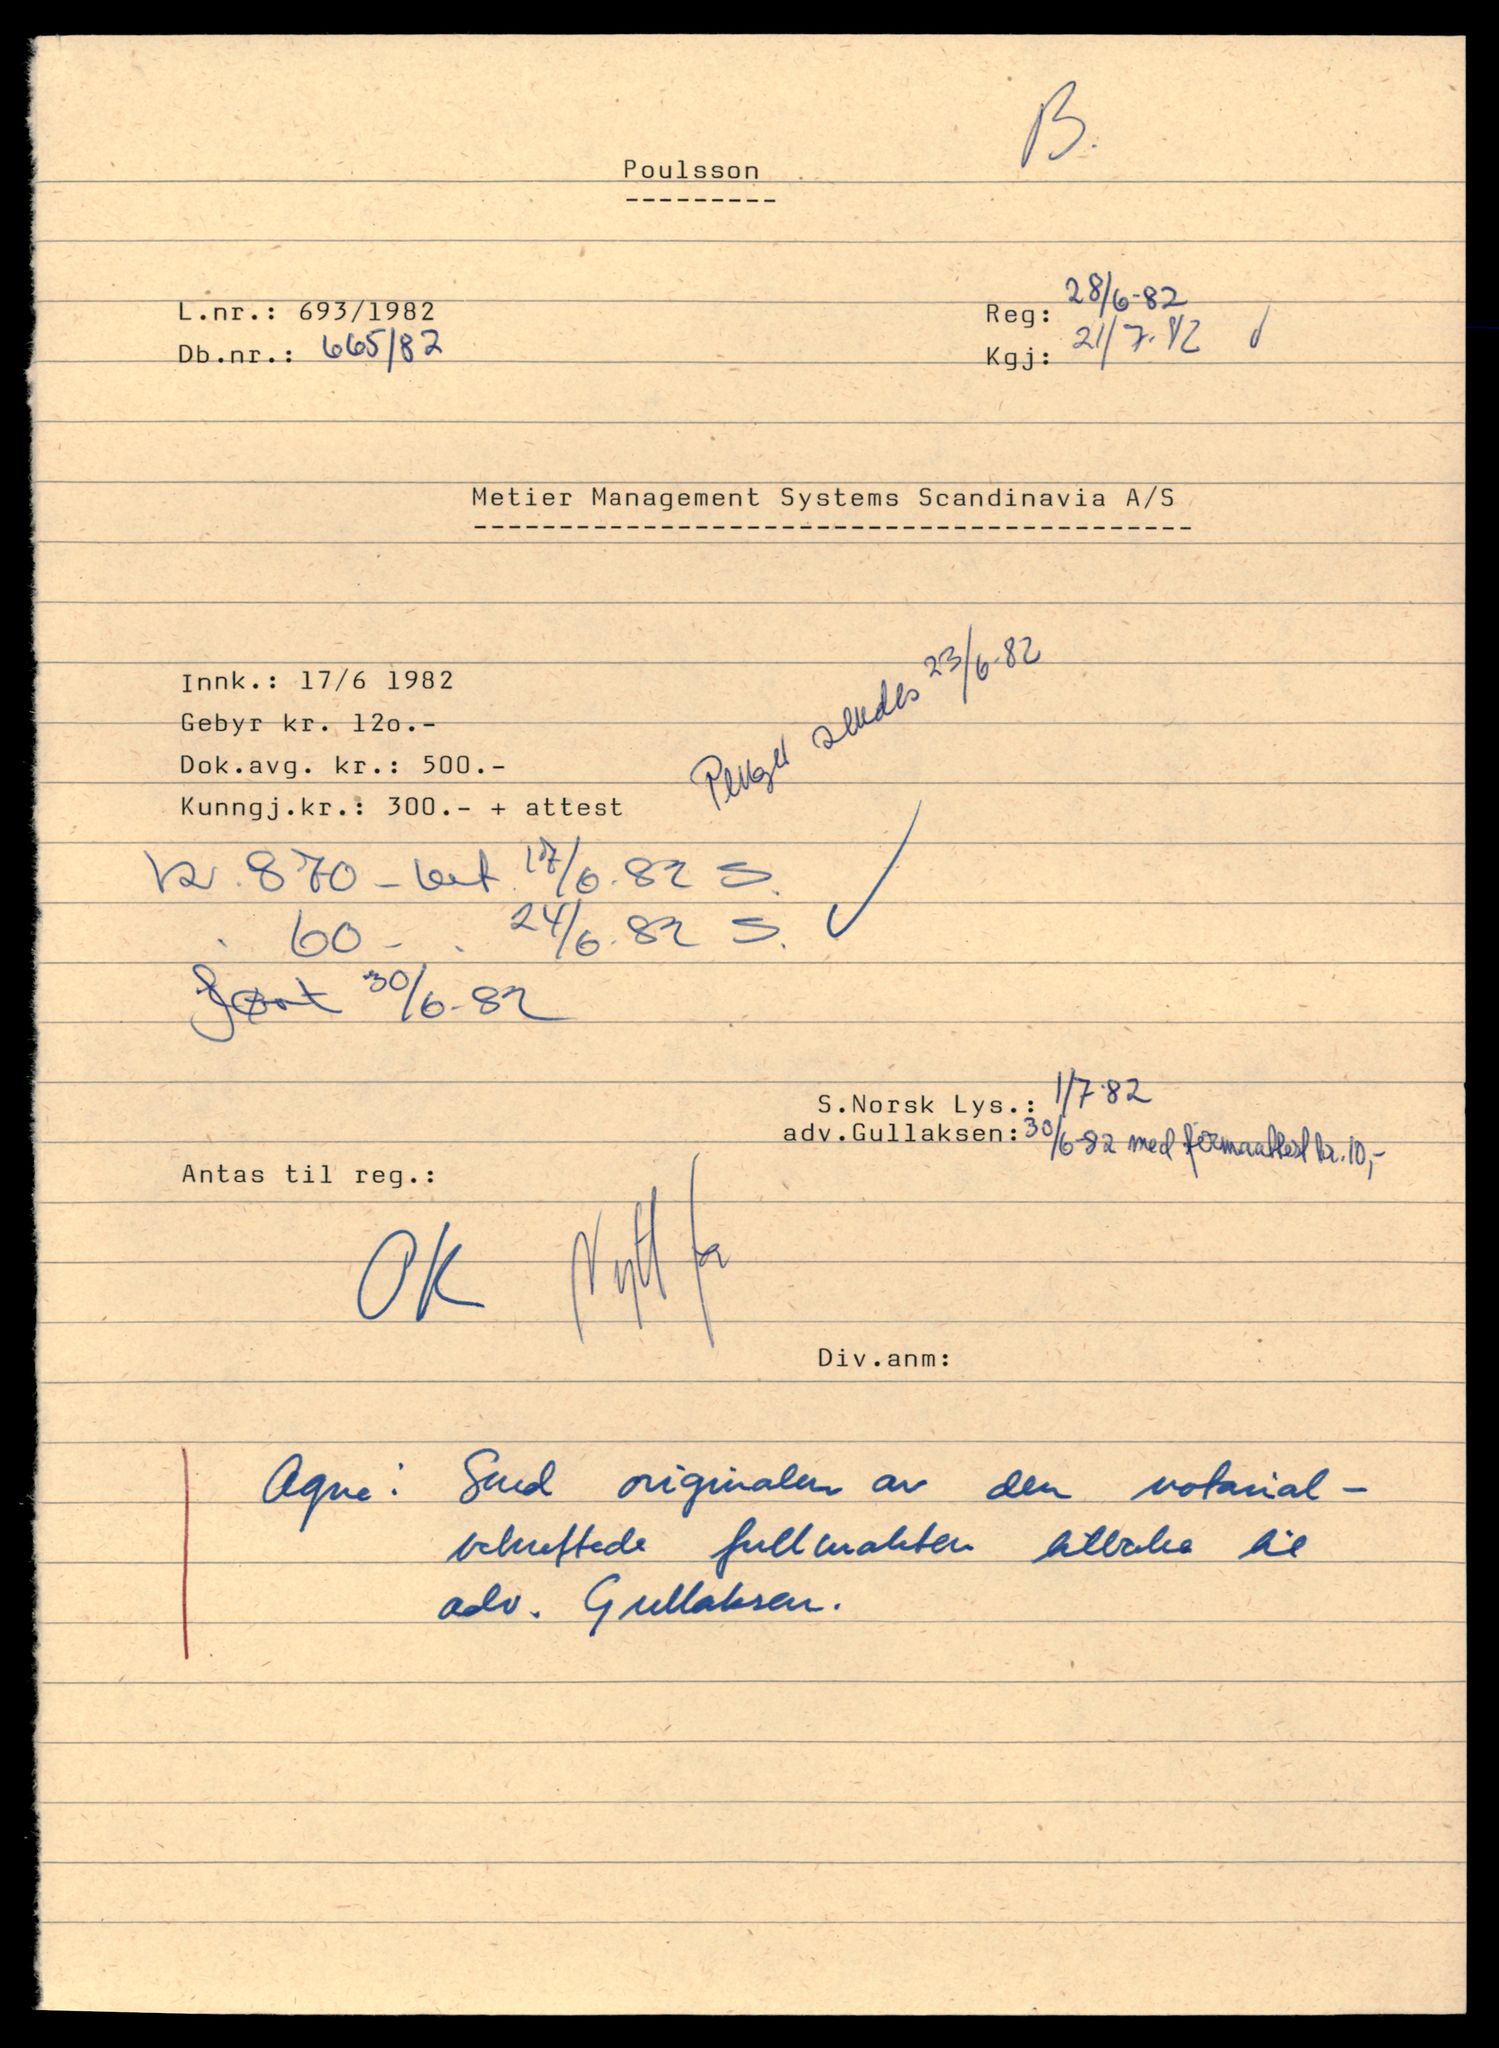 B.
Poulsson
L.nr.: 693/1982
Db.nr.: 665/82
Reg: 28/6-82
Kgj: 21/7.82
Metier Management Systems Scandinavia A/S
Innk.: 17/6 1982
Gebyr kr. 12o.-
Dok.avg. kr.: 500.-
Kunngj.kr.: 300.- + attest
Penger sendes 23/6-82
kr. 870 - bet. 17/6.82 S.
. 60 - . 24/6.82 S.
ført 30/6-82
S.Norsk Lys.: 1/7-82
adv.Gullaksen: 30/6-82 med firmaattest kr. 10,-
Antas til reg.:
OK Nytt fa
Div.anm:
Agne: Send originalen av den notarial-
bekreftede fullmakten tilbake til
adv. Gullaksen.